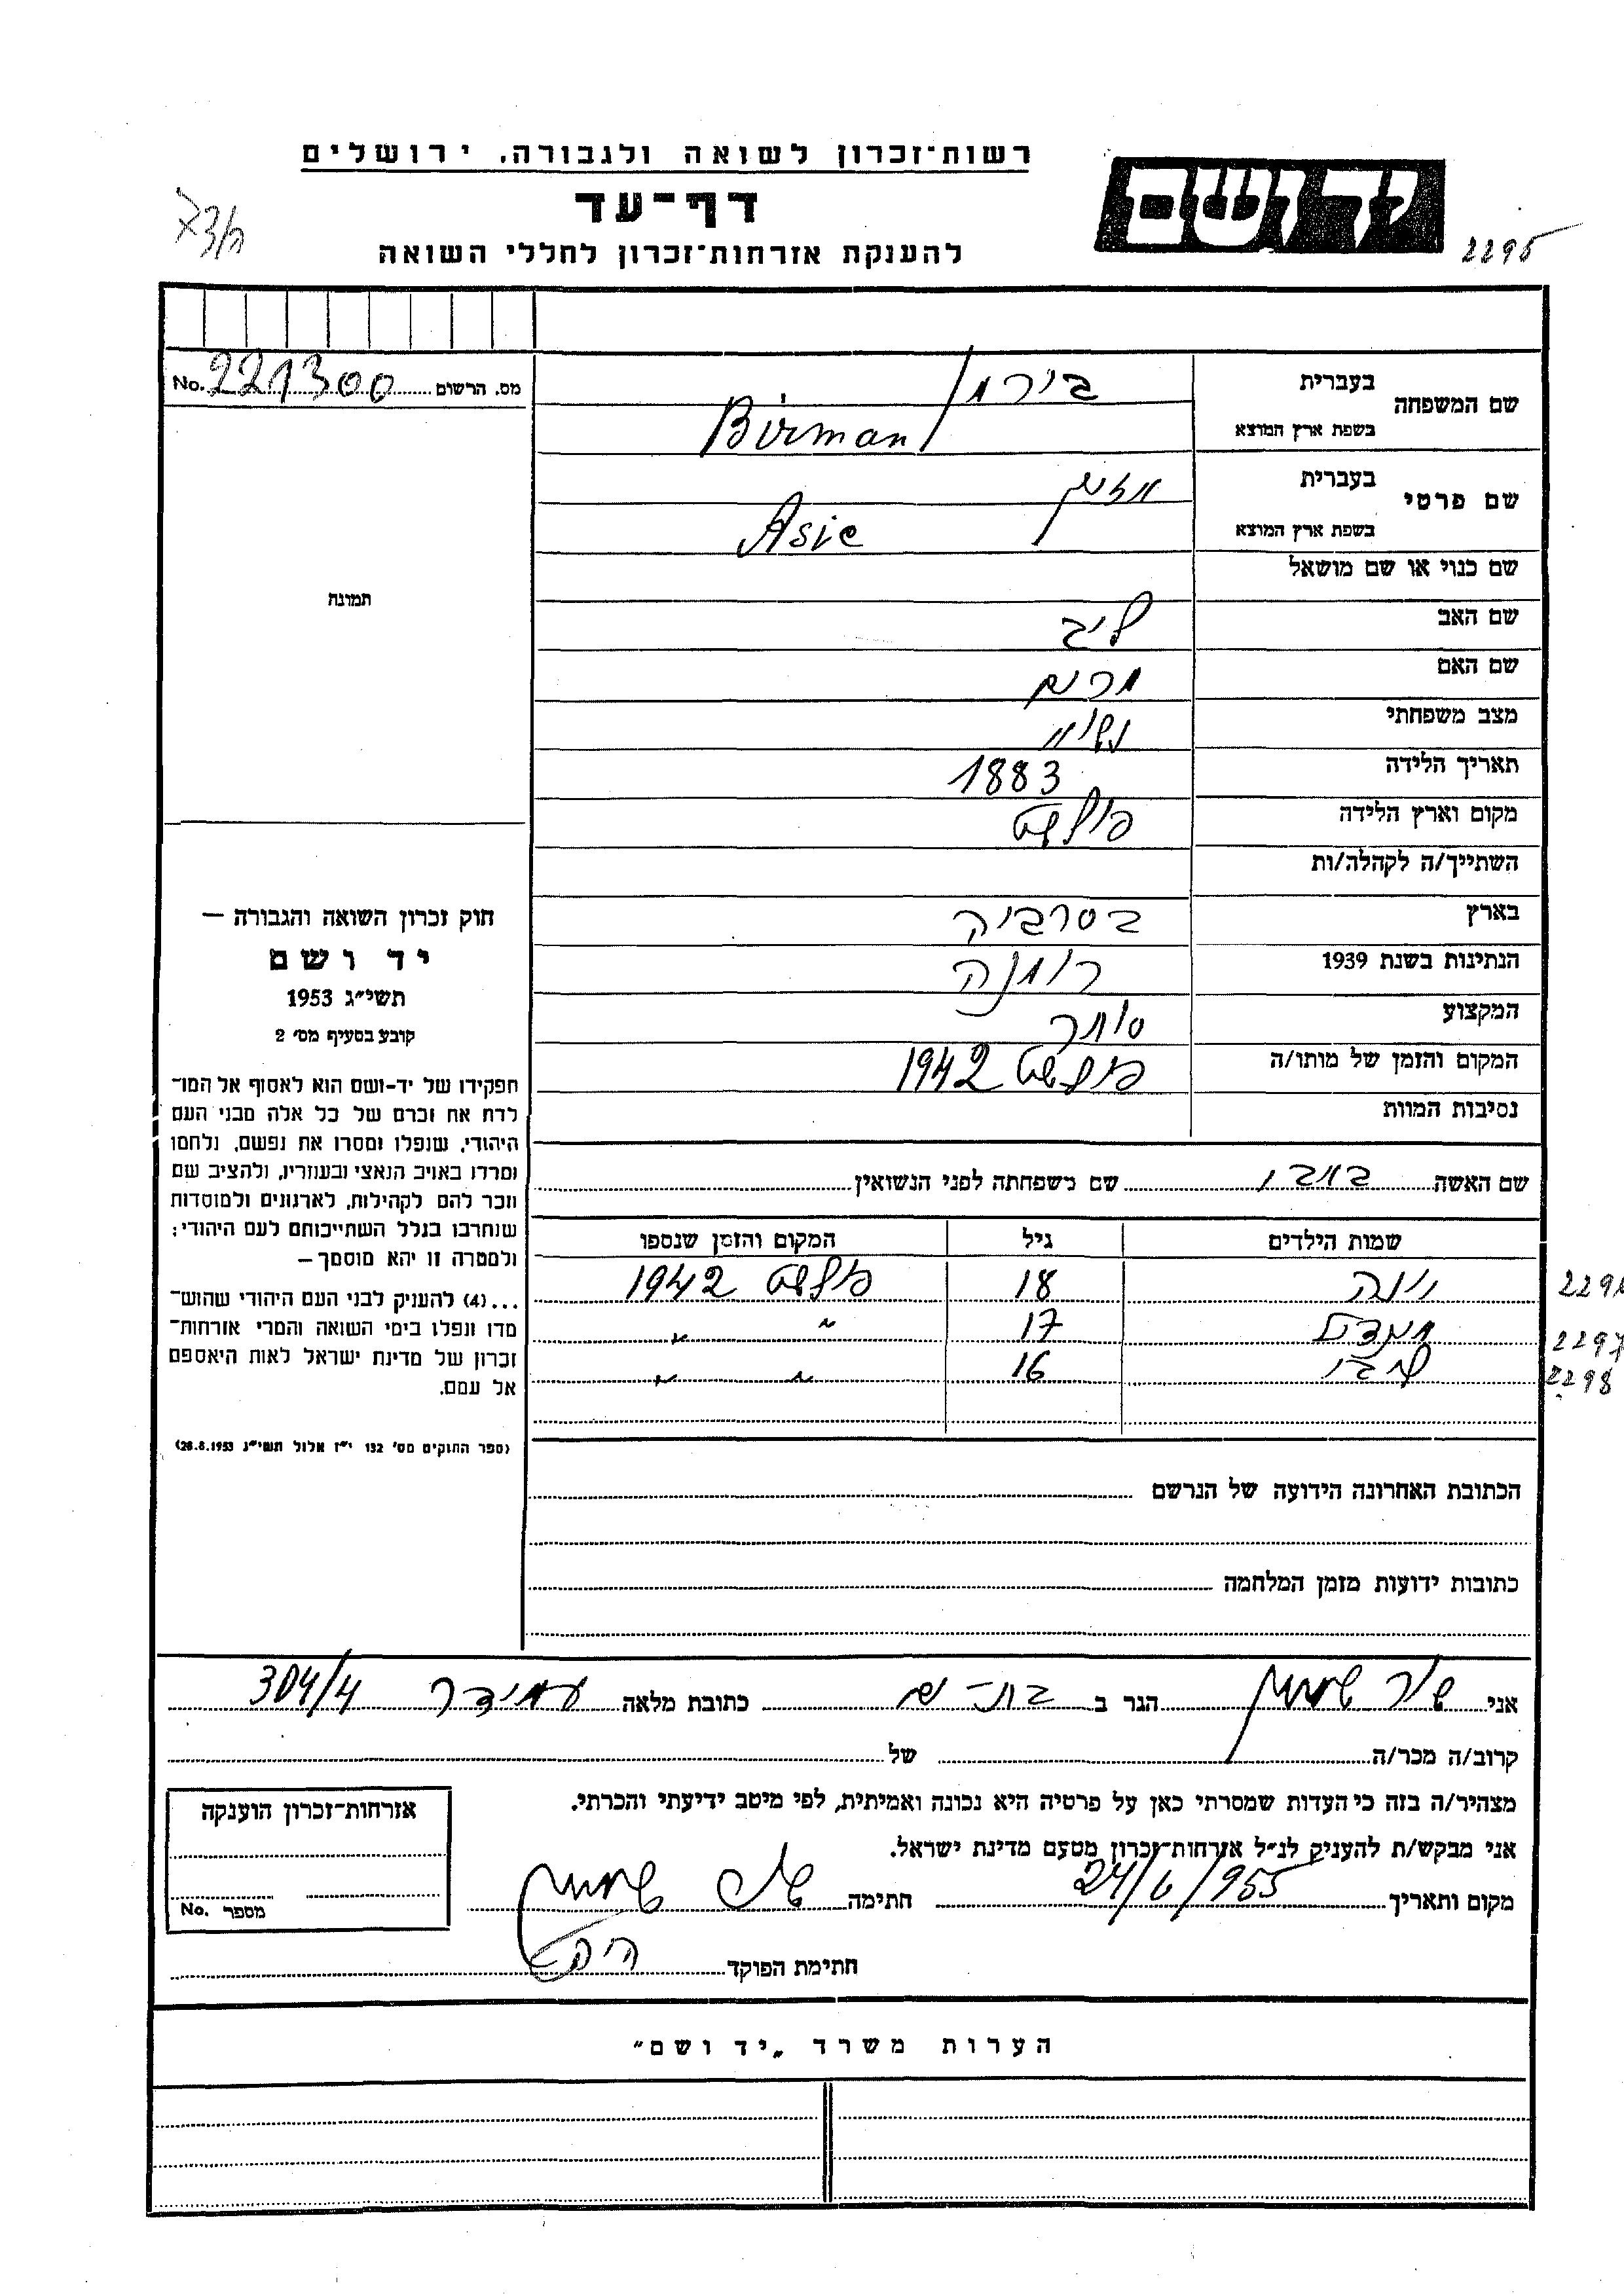 רשות־זכרון לשואה ולגבורה, ירושלים
דף־עד
להענקת אזרחות־זכרון לחללי השואה
יד ושם
2295
מס. הרשום No. 221300
שם המשפחה
בעברית
בשפת ארץ המוצא Birman
שם פרטי
בעברית
בשפת ארץ המוצא Asie
שם כנוי או שם מושאל
שם האב ליב
שם האם מרים
מצב משפחתי נשוי
תאריך הלידה 1883
מקום וארץ הלידה
השתייך/ה לקהלה/ות
בארץ בסרביה
הנתינות בשנת 1939 רומנה
המקצוע סוחר
המקום והזמן של מותו/ה 1942
נסיבות המוות
תמונה
חוק זכרון השואה והגבורה —
יד ושם
תשי״ג 1953
קובע בסעיף מס׳ 2
תפקידו של יד־ושם הוא לאסוף אל המו־
לדת את זכרם של כל אלה מבני העם
היהודי, שנפלו ומסרו את נפשם, נלחמו
ומרדו באויב הנאצי ובעוזריו, ולהציב שם
וזכר להם לקהילות, לארגונים ולמוסדות
שנחרבו בגלל השתייכותם לעם היהודי;
ולמטרה זו יהא מוסמך —
...(4) להעניק לבני העם היהודי שהוש־
מדו ונפלו בימי השואה והמרי אזרחות־
זכרון של מדינת ישראל לאות היאספם
אל עמם.
(ספר החוקים מס׳ 132 י״ז אלול תשי״ג 28.8.1953)
שם האשה שם משפחתה לפני הנשואין
שמות הילדים גיל המקום והזמן שנספו
18 1942
17 " "
2297
16 " "
2298
הכתובת האחרונה הידועה של הנרשם
כתובות ידועות מזמן המלחמה
אני הגר ב בת־ים כתובת מלאה עמידר 304/4
קרוב/ה מכר/ה של
מצהיר/ה בזה כי העדות שמסרתי כאן על פרטיה היא נכונה ואמיתית, לפי מיטב ידיעתי והכרתי.
אני מבקש/ת להעניק לנ״ל אזרחות־זכרון מטעם מדינת ישראל.
מקום ותאריך 24/6/955 חתימה
חתימת הפוקד
אזרחות־זכרון הוענקה
מספר No.
הערות משרד „יד ושם״